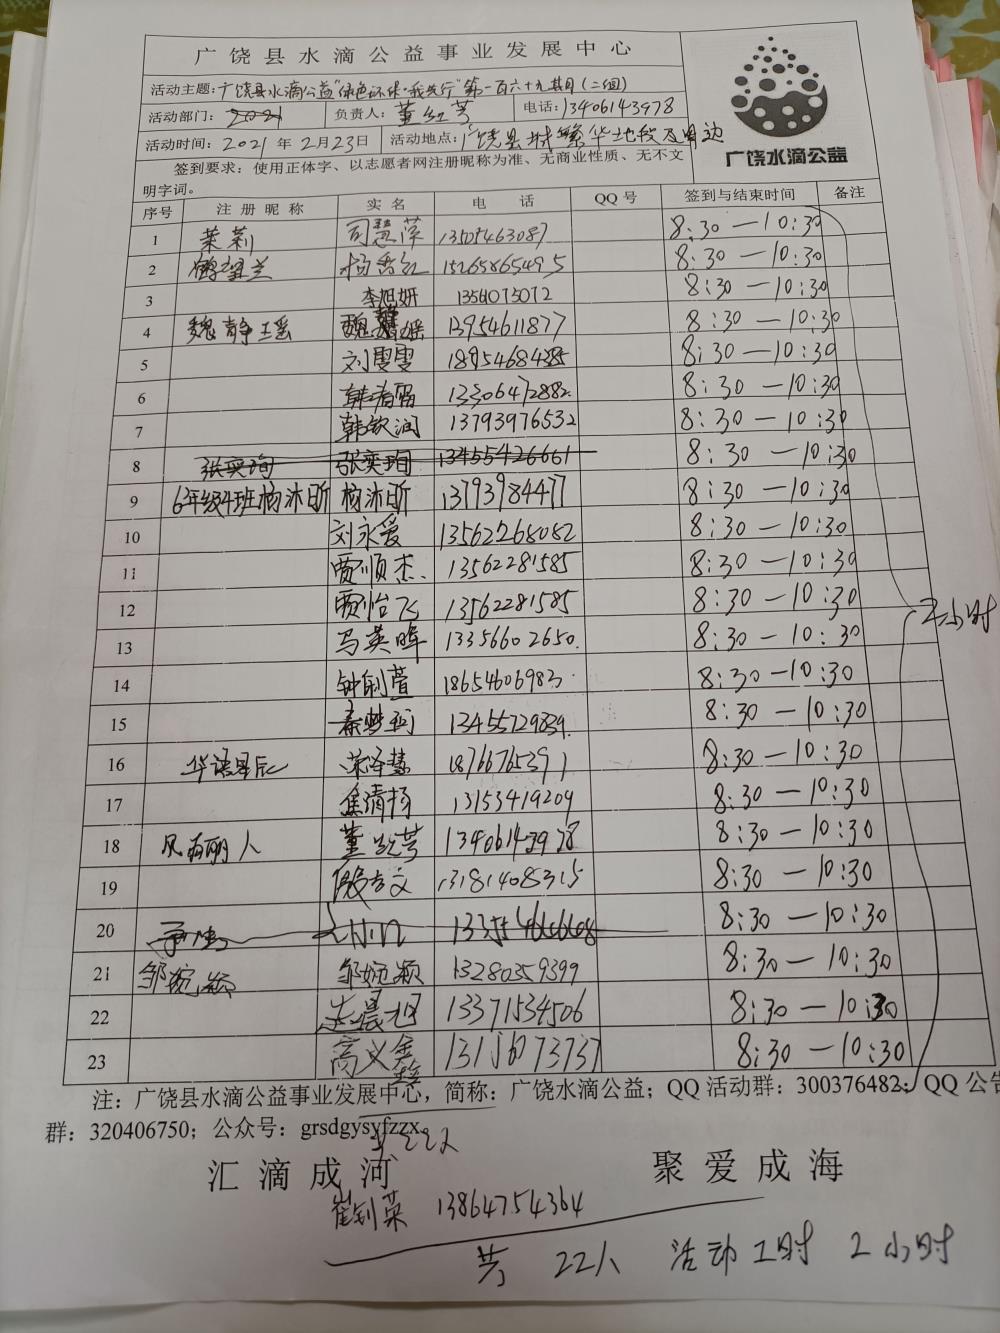 广饶县水滴公益事业发展中心
活动主题：广饶县水滴公益"绿色环保·我先行"第一百六十九期(二组)
活动部门： 负责人：董红芳 电话：13406143978
活动时间：2021年2月23日 活动地点：广饶县城繁华地段及周边
签到要求：使用正体字、以志愿者网注册昵称为准、无商业性质、无不文
明字词。
广饶水滴公益
序号 注册昵称 实名 电话 QQ号 签到与结束时间 备注
1 茉莉 司慧萍 13505463087 8:30—10:30
2 鹤望兰 杨香红 15265865495 8:30—10:30
3 李旭妍 8:30—10:30
4 魏静瑶 魏静瑶 13954611877 8:30—10:30
5 刘雯雯 8:30—10:30
6 韩 13306472882 8:30—10:30
7 韩钦润 13793976532 8:30—10:30
8 张奕珣 张奕珣 13455426661 8:30—10:30
9 6年级4班杨沐昕 杨沐昕 13793984477 8:30—10:30
10 刘永爱 13562268082 8:30—10:30
11 贾顺杰 13562281585 8:30—10:30
12 贾怡飞 13562281585 8:30—10:30
13 马英晖 13356602650 8:30—10:30
14 钟 萱 18654606983 8:30—10:30
15 秦梦珂 13455729839 8:30—10:30
16 华语星辰 荣泽慧 18766765391 8:30—10:30
17 焦清扬 13153419209 8:30—10:30
18 董红芳 13406143978 8:30—10:30
19 殷 文 13181408315 8:30—10:30
20 8:30—10:30
21 邹婉颖 邹婉颖 13280359399 8:30—10:30
22 赵晨旭 13371534506 8:30—10:30
23 高义鑫 8:30—10:30
2小时
注：广饶县水滴公益事业发展中心，简称：广饶水滴公益；QQ活动群：300376482；QQ公告
群：320406750；公众号：grsdgysyfzzx。
汇滴成河 聚爱成海
崔钊荣 13864754364
共 22人 活动工时 2小时